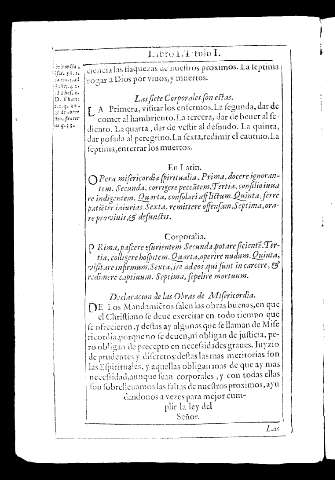 Libro I. Titulo I.
ciencia las flaquezas de nuestros proximos. La septima
rogar a Dios por vivos, y muertos.
Las siete Corporales son estas.
LA Primera, visitar los enfermos. La segunda, dar de
comer al hambriento. La tercera, dar de bever al se-
diento. La quarta, dar de vestir al desnudo. La quinta,
dar posada al peregrino. La sexta, redimir el cautivo. La
septima, enterrar los muertos.
En Latin.
OPera misericordiæ spiritualia. Prima, docere ignoran-
tem. Secunda, corrigere peccãtem. Tertia, consiliũ dare
indigentem. Quarta, consolari afflictum. Quinta, ferre
patiẽter iniurias. Sexta, remittere offensam. Septima, ora-
re pro vivis, & defunctis.
Corporalia.
PRima, pascere esurientem. Secunda potare sicientẽ. Ter-
tia, colligere hospitem. Quarta, operire nudum. Quinta,
visitare infirmum. Sexta, ire ad eos qui sunt in carcere, &
redimere captivum. Septima, sepelire mortuum.
Declaracion de las Obras de Misericordia.
DE Los Mandamiẽtos salen las obras buenas, en que
el Christiano se deve exercitar en todo tiempo que
se ofrecieren, y destas ay algunas que se llaman de Mise
ricordia, porque no se deven, ni obligan de justicia, pe-
ro obligan de precepto en necessidades graves. Iuyzio
de prudentes y discretos destas las mas meritorias son
las Espirituales, y aquellas obligaran mas de que ay mas
necessidad, aunque sean corporales, y con todas ellas
son sobrellevamos las faltas de nuestros proximos, ayu
dandonos a vezes para mejor cum-
plir la ley del
Señor.
Las